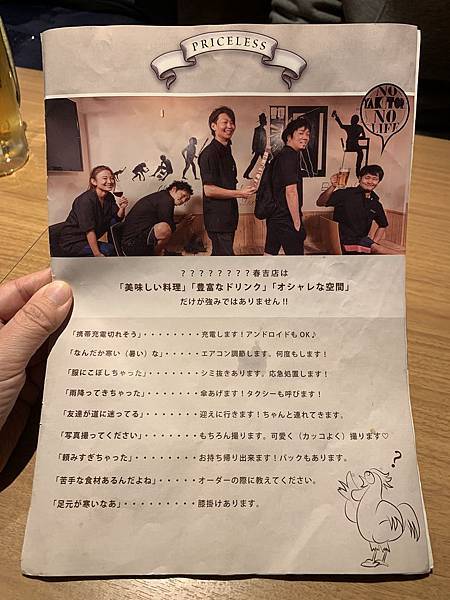 PRICELESS
NO
YAKITORI
NO
LIFE
????????春吉店は
「美味しい料理」「豊富なドリンク」「オシャレな空間」
だけが強みではありません!!
「携帯充電切れそう」・・・・・・・・充電します!アンドロイドもOK♪
「なんだか寒い（暑い）な」・・・・・エアコン調節します。何度もします!
「服にこぼしちゃった」・・・・・・・シミ抜きあります。応急処置します!
「雨降ってきちゃった」・・・・・・・傘あげます!タクシーも呼びます!
「友達が道に迷ってる」・・・・・・・迎えに行きます!ちゃんと連れてきます。
「写真撮ってください」・・・・・・・もちろん撮ります。可愛く（カッコよく）撮ります♡
「頼みすぎちゃった」・・・・・・・・お持ち帰り出来ます!パックもあります。
「苦手な食材あるんだよね」・・・・・オーダーの際に教えてください。
「足元が寒いなあ」・・・・・・・・・膝掛けあります。
?